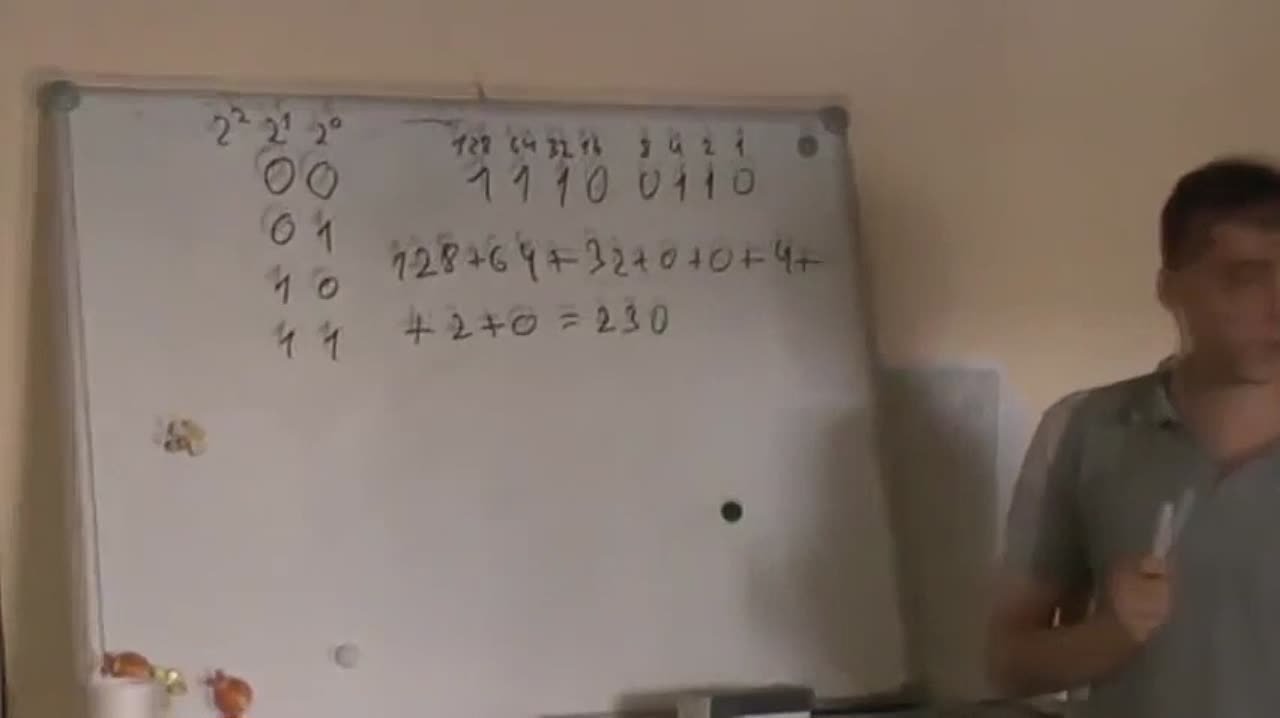 2² 2¹ 2⁰
0 0
0 1
1 0
1 1
128 64 32 16 8 4 2 1
1 1 1 0 0 1 1 0
128+64+32+0+0+4+
+2+0=230